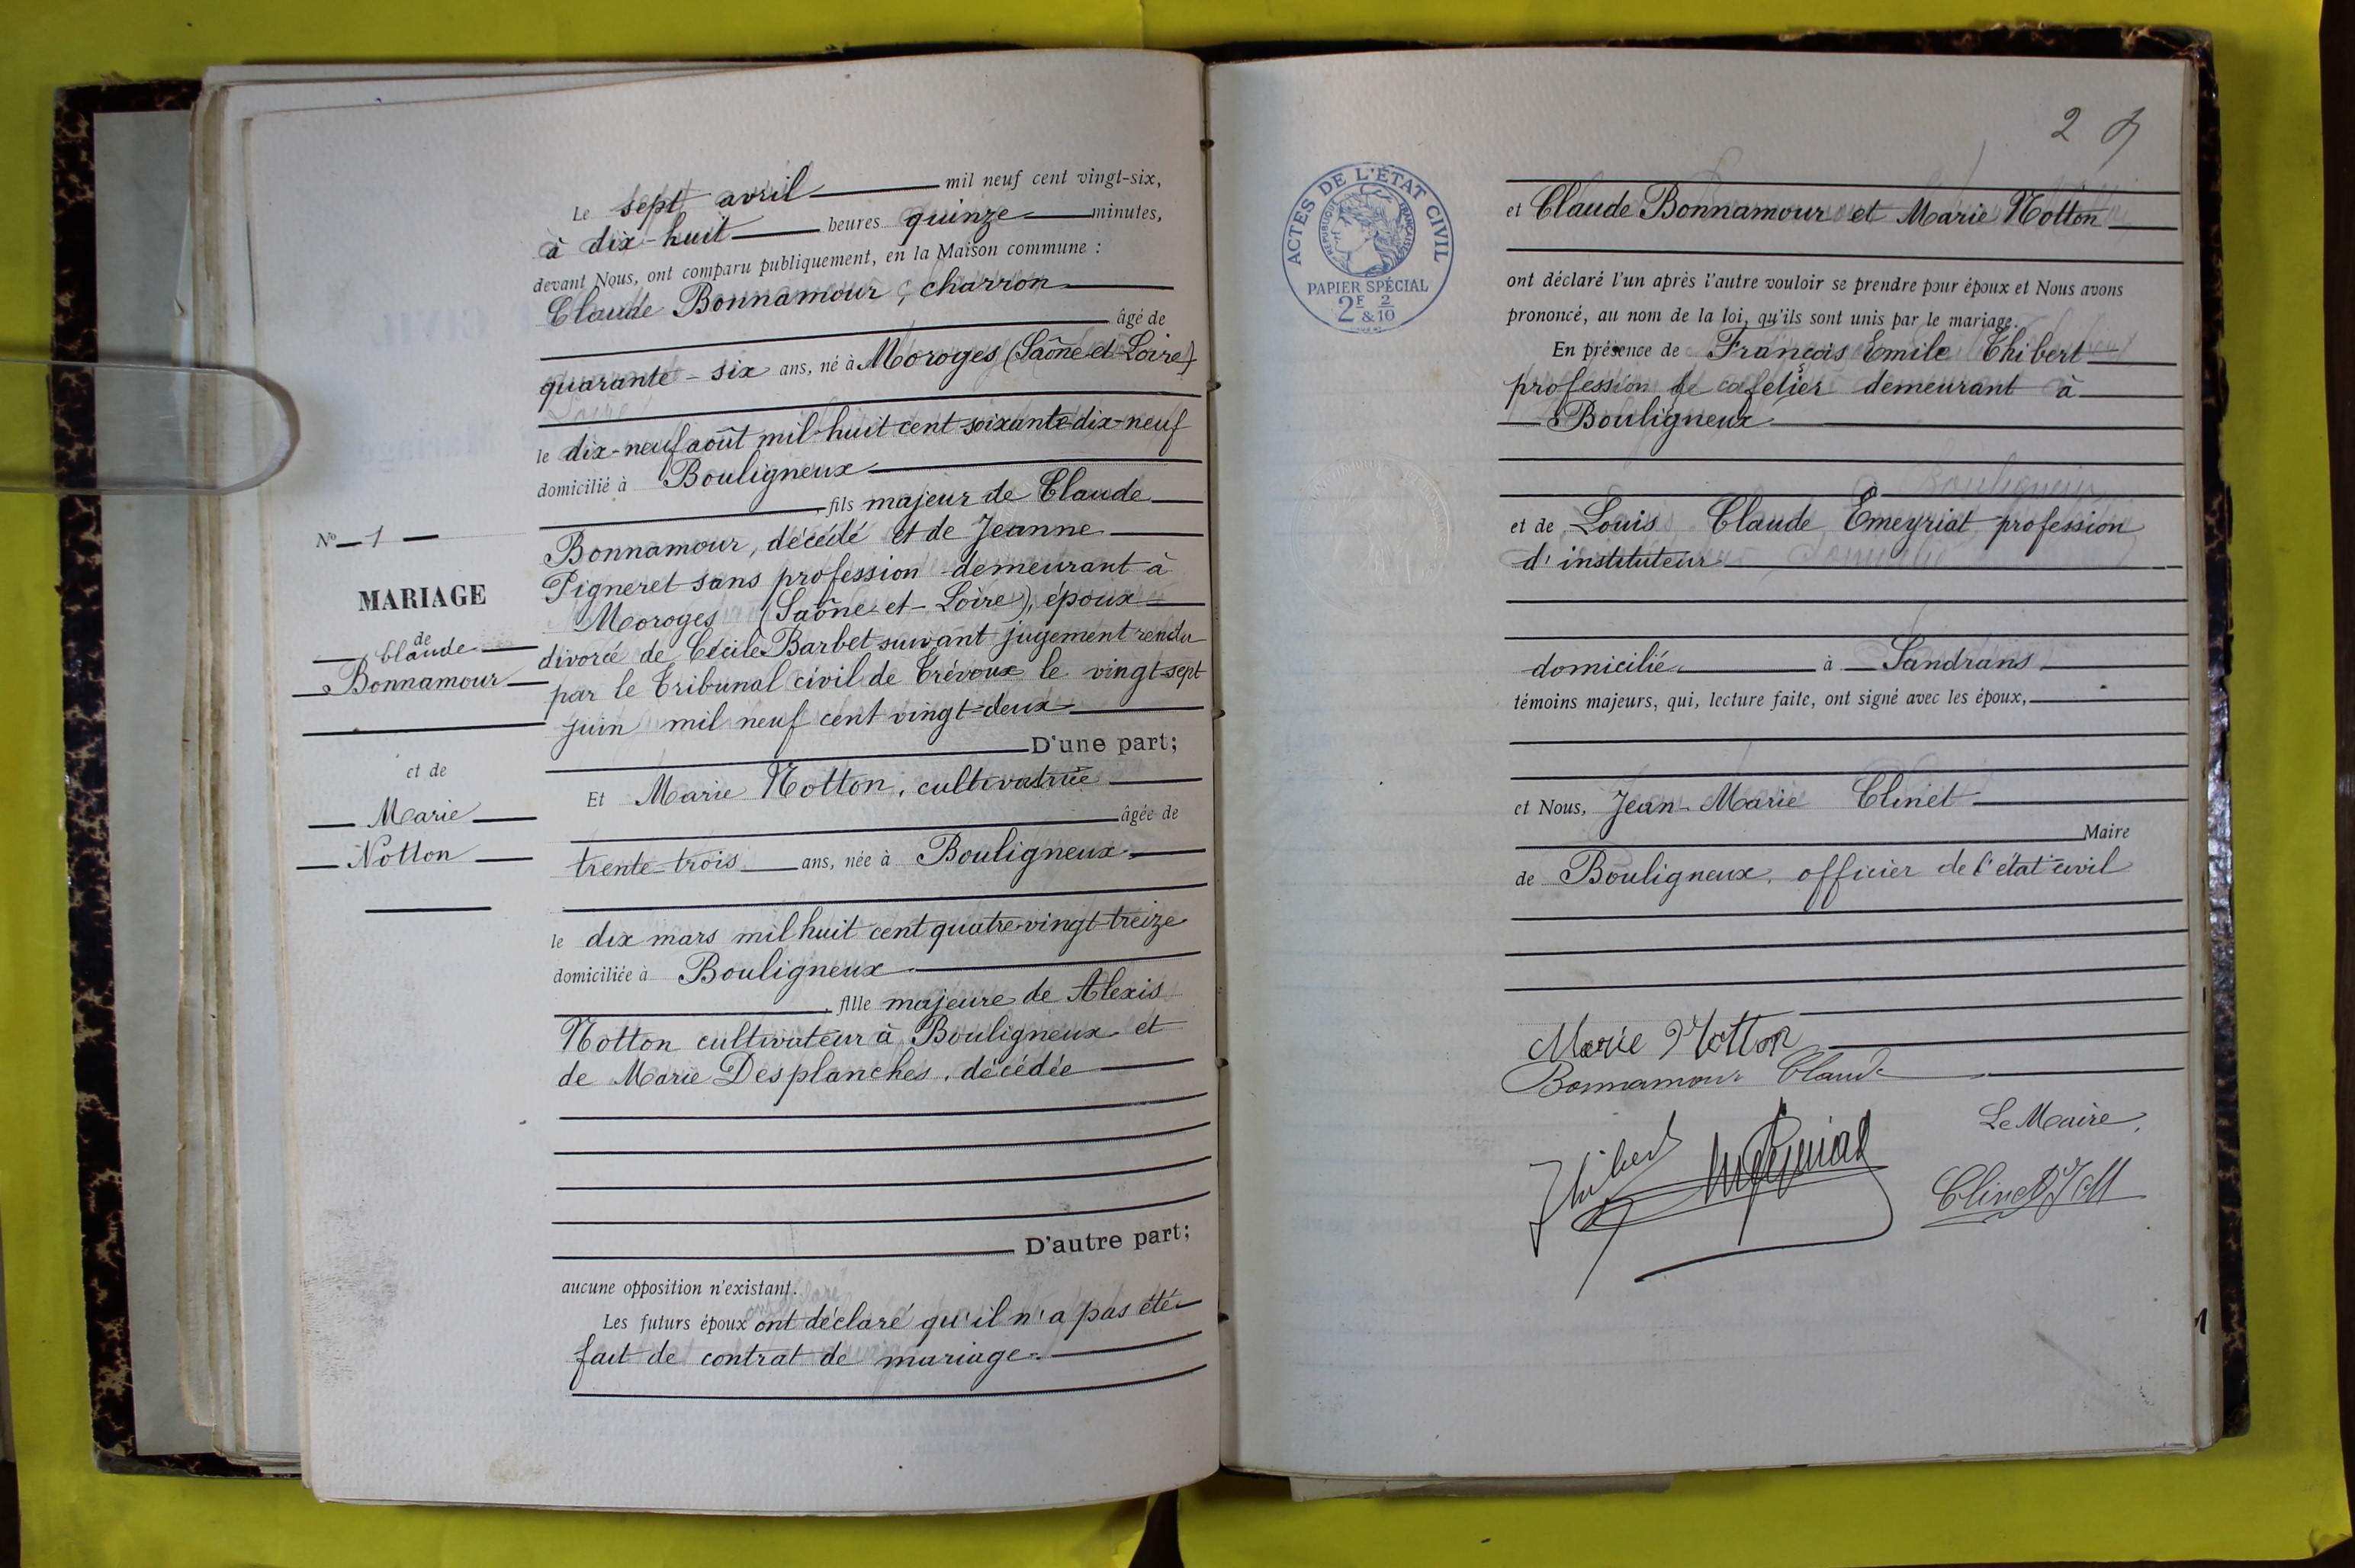 N° 1
MARIAGE
de
Claude
Bonnamour
et de
Marie
Notton
Le sept avril mil neuf cent vingt-six,
à dix-huit heures quinze minutes,
devant Nous, ont comparu publiquement, en la Maison commune :
Claude Bonnamour, charron
âgé de
quarante-six ans, né à Moroges (Saône-et-Loire)
le dix-neuf août mil huit cent soixante-dix-neuf
domicilié à Bouligneux
, fils majeur de Claude
Bonnamour, décédé et de Jeanne
Pigneret sans profession demeurant à
Moroges (Saône-et-Loire), époux
divorcé de Cécile Barbet suivant jugement rendu
par le Tribunal civil de Trévoux le vingt-sept
juin mil neuf cent vingt-deux
D'une part;
Et Marie Notton, cultivatrice
âgée de
trente-trois ans, née à Bouligneux
le dix mars mil huit cent quatre-vingt-treize
domiciliée à Bouligneux
, fille majeure de Alexis
Notton cultivateur à Bouligneux et
de Marie Desplanches, décédée
D'autre part;
aucune opposition n'existant.
Les futurs époux ont déclaré qu'il n'a pas été
fait de contrat de mariage.
2
ACTES DE L'ÉTAT CIVIL
RÉPUBLIQUE FRANÇAISE
PAPIER SPÉCIAL
2F 2
& 10
et Claude Bonnamour et Marie Notton
ont déclaré l'un après l'autre vouloir se prendre pour époux et Nous avons
prononcé, au nom de la loi, qu'ils sont unis par le mariage.
En présence de François Emile Thibert
profession de cafetier demeurant à
Bouligneux
à
et de Louis Claude Emeyriat profession
d'instituteur
domicilié à Sandrans
témoins majeurs, qui, lecture faite, ont signé avec les époux,
et Nous, Jean-Marie Clinet
Maire
de Bouligneux, officier de l'état civil
Marie Notton
Bonnamour Claude
Le Maire,
Thibert
Clinet JM